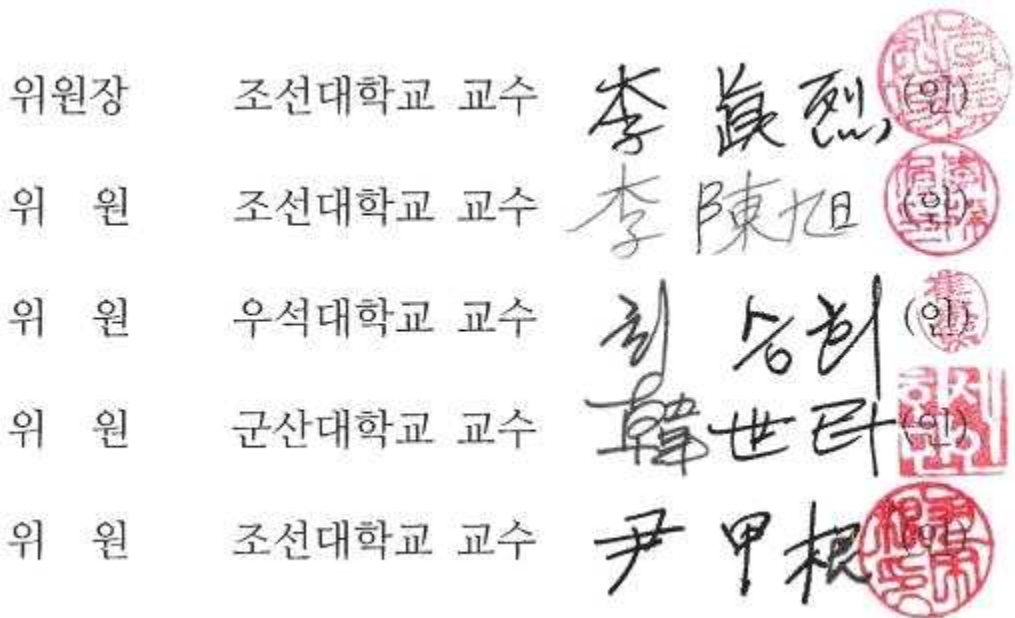 위원장 조선대학교 교수 李 眞 烈 (인)
위 원 조선대학교 교수 李 陳 旭 (인)
위 원 우석대학교 교수 최 승희 (인)
위 원 군산대학교 교수 韓 世 (인)
위 원 조선대학교 교수 尹 甲 根 (인)